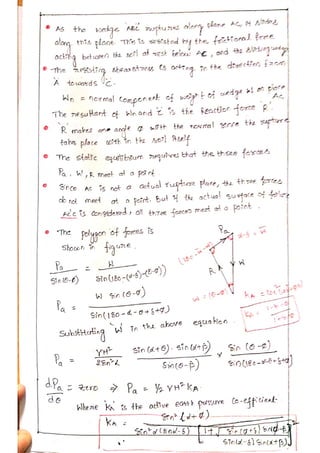 As the wedge ABC ruptures along plane AC, it slides
along this plane. This is resisted by the frictional force
acting between the soil at rest below AC, and the sliding wedge
The resisting is acting in the direction from
A towards C.
Wn = normal component of weight of wedge W on plane AC
The resultant of Wn and τ is the reaction force R.
R makes angle φ with the normal since the rupture
takes place with in the soil itself
The static equilibrium requires that the three forces
Pa, W, R meet at a point
Since AC is not a actual rupture plane, the three forces
do not meet at a point. But if the actual surface of failure
AC'C is considered, all three forces meet at a point.
The polygon of forces is
shown in figure.
Pa
R
W
Pa / Sin(θ-φ) = W / Sin(180-(α-δ)-(θ-φ))
Pa = W Sin(θ-φ) / Sin(180-α-θ+δ+φ)
Substituting 'W' in the above equation.
Pa = γH² / 2Sin²α · Sin(α+θ). Sin(α+β) / Sin(θ-β) × Sin(θ-φ) / Sin(180-α-θ+δ+φ)
dPa / dθ = zero ⇒ Pa = ½ γH² KA
Where KA is the active earth pressure co-efficient.
KA = Sin²(α+φ) / Sin²α Sin(α-δ) [1+√ Sin(φ+δ) Sin(φ-β) / Sin(α-δ) Sin(α+β)]